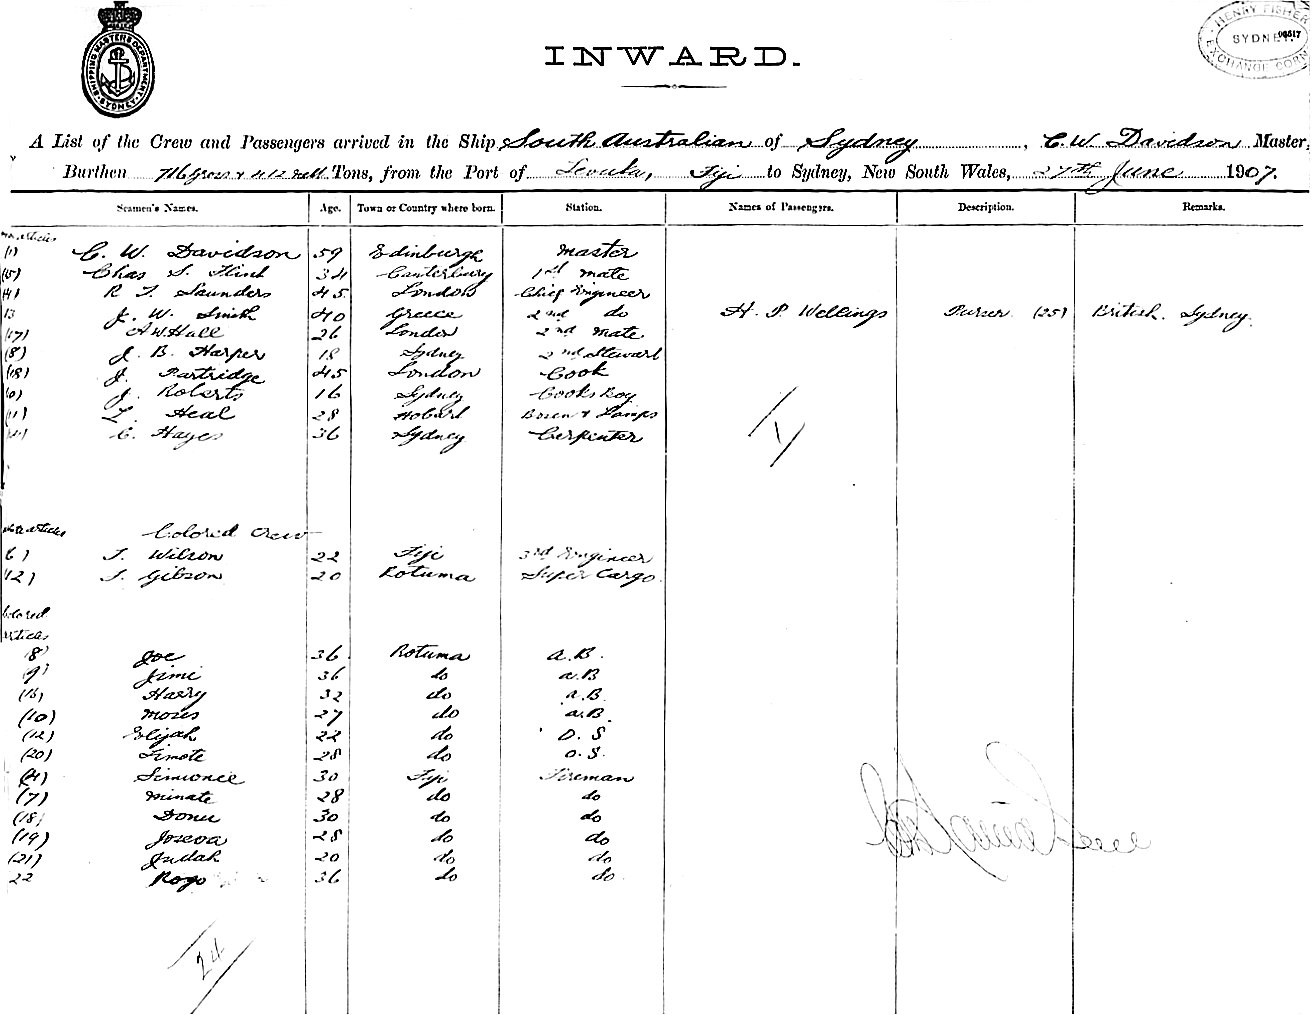 SHIPPING MASTERS DEPARTMENT SYDNEY
HENRY FISHER
SYDNEY
EXCHANGE CORN
INWARD.
A List of the Crew and Passengers arrived in the Ship South Australian of Sydney, C. W. Davidson Master,
Burthen 716 Gross & 412 nett Tons, from the Port of Levuka, Fiji to Sydney, New South Wales, 27th June 1907.
Seamen's Names. Age. Town or Country where born. Station. Names of Passengers. Description. Remarks.
articles
(1) C. W. Davidson 59 Edinburgh Master
(15) Chas S. Flint 34 Canterbury 1st mate
(4) R T. Saunders 45 London Chief Engineer
13 J. W. Smith 40 Greece 2nd do H. P. Wellings Purser (25) British. Sydney.
(17) A W Hall 26 London 2nd mate
(8) J. B. Harper 18 Sydney 2nd Steward
(18) J. Partridge 45 London Cook
J. Roberts 16 Sydney Cooks Boy
(11) Heal 28 Hobart Bosen & Lamps
C. Hayes 36 Sydney Carpenter
1
white articles Colored Crew
6) T. Wilson 22 Fiji 3rd Engineer
(12) T. Gibson 20 Rotuma Super Cargo
Colored
articles
(8) Joe 36 Rotuma A.B.
(9) Jimi 36 do A.B
Harry 32 do A.B.
(10) Moses 27 do A.B.
(12) Elijah 22 do O. S
(20) Timote 28 do O. S.
(4) Simionee 30 Fiji Fireman
(7) Minate 28 do do
(18) Donu 30 do do
(19) Joseva 28 do do
(21) Judah 20 do do
22 Rogo 36 do do
24